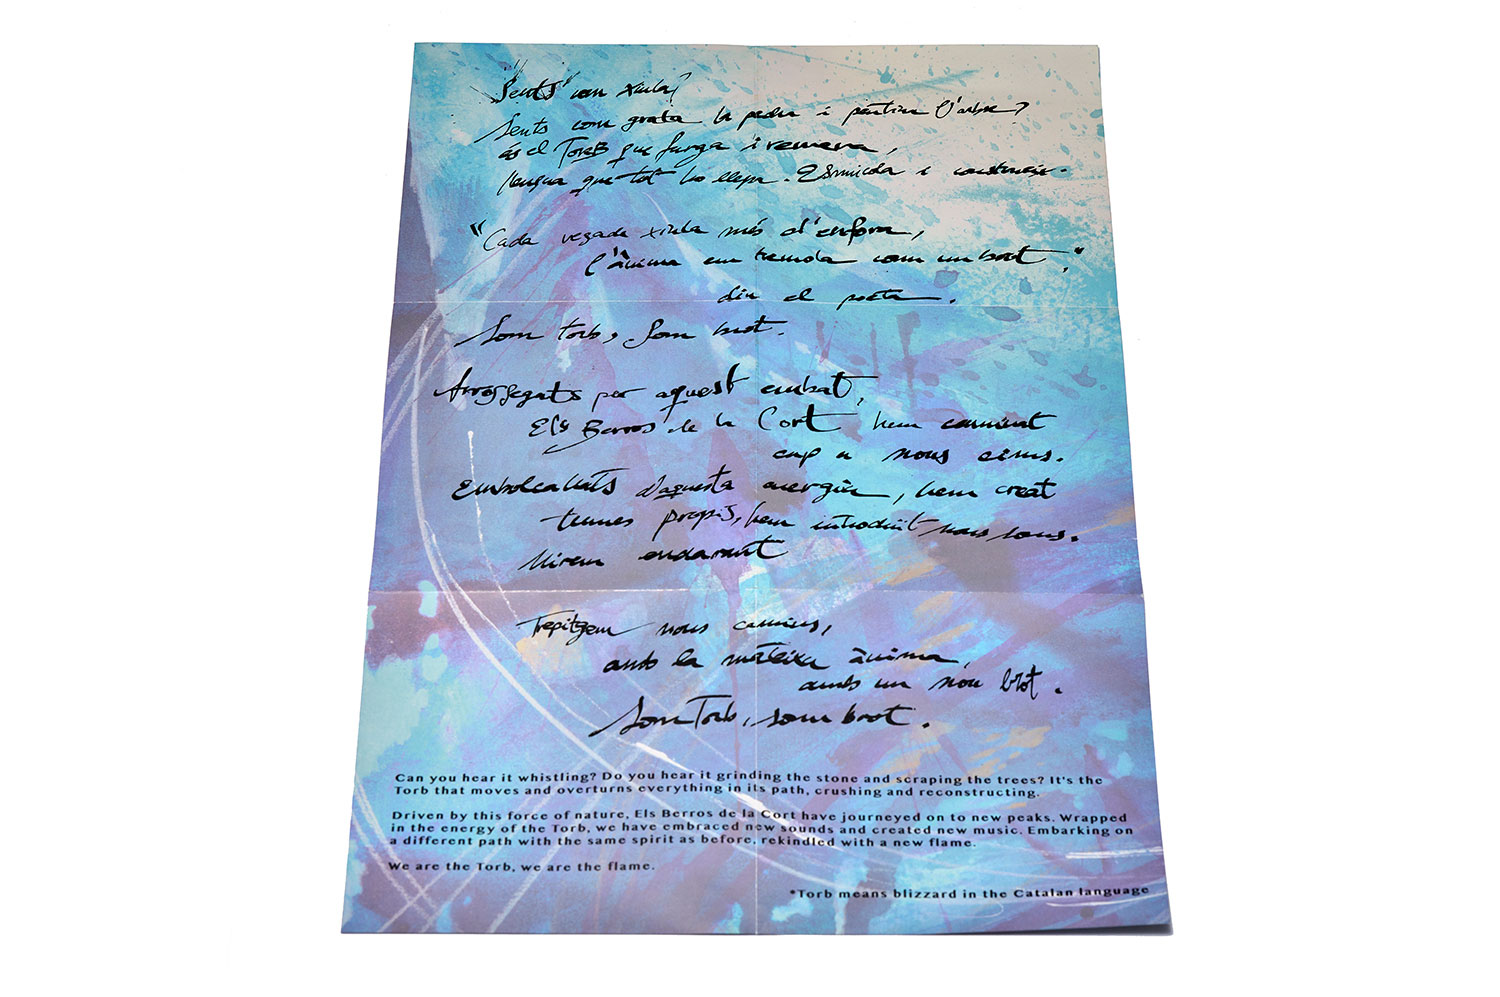 Sents com xiula?
Sents com grata la pedra i pentina l'arbre?
és el Torb que furga i remena,
llengua que tot ho llepa. Esmicola i construeix.
"Cada vegada xiula més al'enfora,
l'ànima em tremola com un brot."
diu el poeta.
Som torb, som brot.
Arrossegats per aquest embat,
Els Berros de la Cort hem caminat
cap a nous cims.
Embolcallats d'aquesta energia, hem creat
temes propis, hem introduït nous sons.
Mirem endavant
Trepitgem nous camins,
amb la mateixa ànima,
amb un nou brot.
Som Torb, som brot.
Can you hear it whistling? Do you hear it grinding the stone and scraping the trees? It's the
Torb that moves and overturns everything in its path, crushing and reconstructing.
Driven by this force of nature, Els Berros de la Cort have journeyed on to new peaks. Wrapped
in the energy of the Torb, we have embraced new sounds and created new music. Embarking on
a different path with the same spirit as before, rekindled with a new flame.
We are the Torb, we are the flame.
*Torb means blizzard in the Catalan language